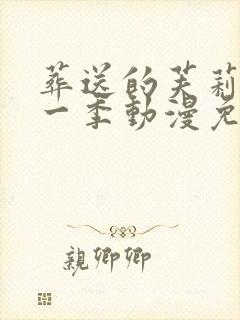 葬送的芙莉
一季動漫免
親卿卿